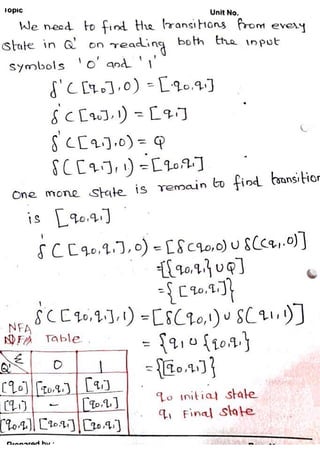 Topic Unit No.
We need to find the transitions from every
state in Q' on reading both the input
symbols '0' and '1'
δ'([q0],0) = [q0,q1]
δ'([q0],1) = [q1]
δ'([q1],0) = φ
δ([q1],1) = [q0,q1]
One more state is remain to find transition
is [q0,q1]
δ([q0,q1],0) = [δ(q0,0) ∪ δ((q1,0)]
={{q0,q1} ∪ φ]
={[q0,q1]}
δ'([q0,q1],1) = [δ(q0,1) ∪ δ(q1,1)]
= {q1 ∪ {q0,q1}
= {[q0,q1]}
NFA
Table
Q' Σ 0 1
[q0] [q0,q1] [q1]
[q1) - [q0,q1]
[q0,q1] [q0,q1] [q0,q1]
q0 initial state
q1 Final state
Prepared by :